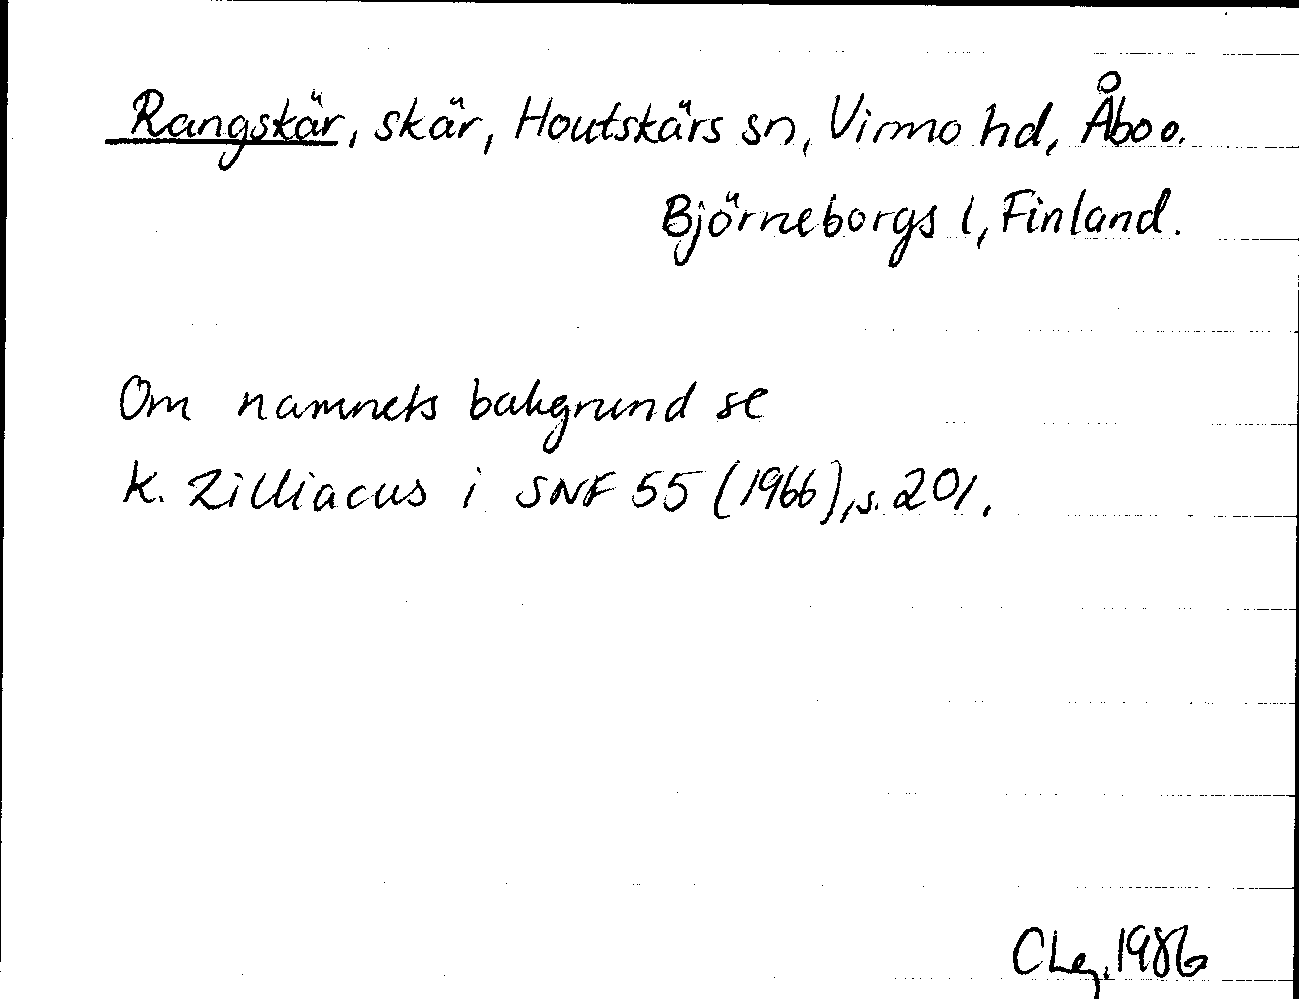 Rangskär, skär, Houtskärs sn, Virmo hd, Åbo o.
Björneborgs l, Finland.
Om namnets bakgrund se
K. Zilliacus i SNF 55 (1966), s. 201.
CLg. 1986